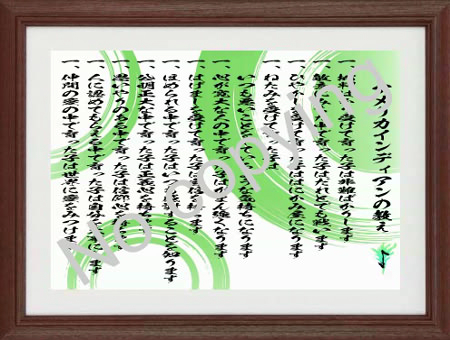 アメリカインディアンの教え
一、批判ばかり受けて育った子は非難ばかりします
一、敵意にみちた中で育った子はだれとでも戦います
一、ひやかしを受けて育った子ははにかみ屋になります
一、ねたみを受けて育った子は
いつも悪いことをしているような気持ちになります
一、心が寛大な人の中で育った子はがまん強くなります
一、はげましを受けて育った子は自信を持ちます
一、ほめられる中で育った子はいつも感謝することを知ります
一、公明正大な中で育った子は正義心を持ちます
一、思いやりのある中で育った子は信仰心を持ちます
一、人に認めてもらえる中で育った子は自分を大事にします
一、仲間の愛の中で育った子は世界に愛をみつけます
No copying